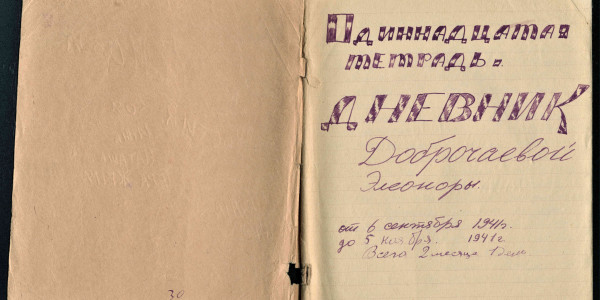 30
Одиннадцатая
тетрадь.
ДНЕВНИК
Доброчаевой
Элеоноры.
от 6 сентября 1941г.
до 5 ноября. 1941г.
Всего 2 месяца